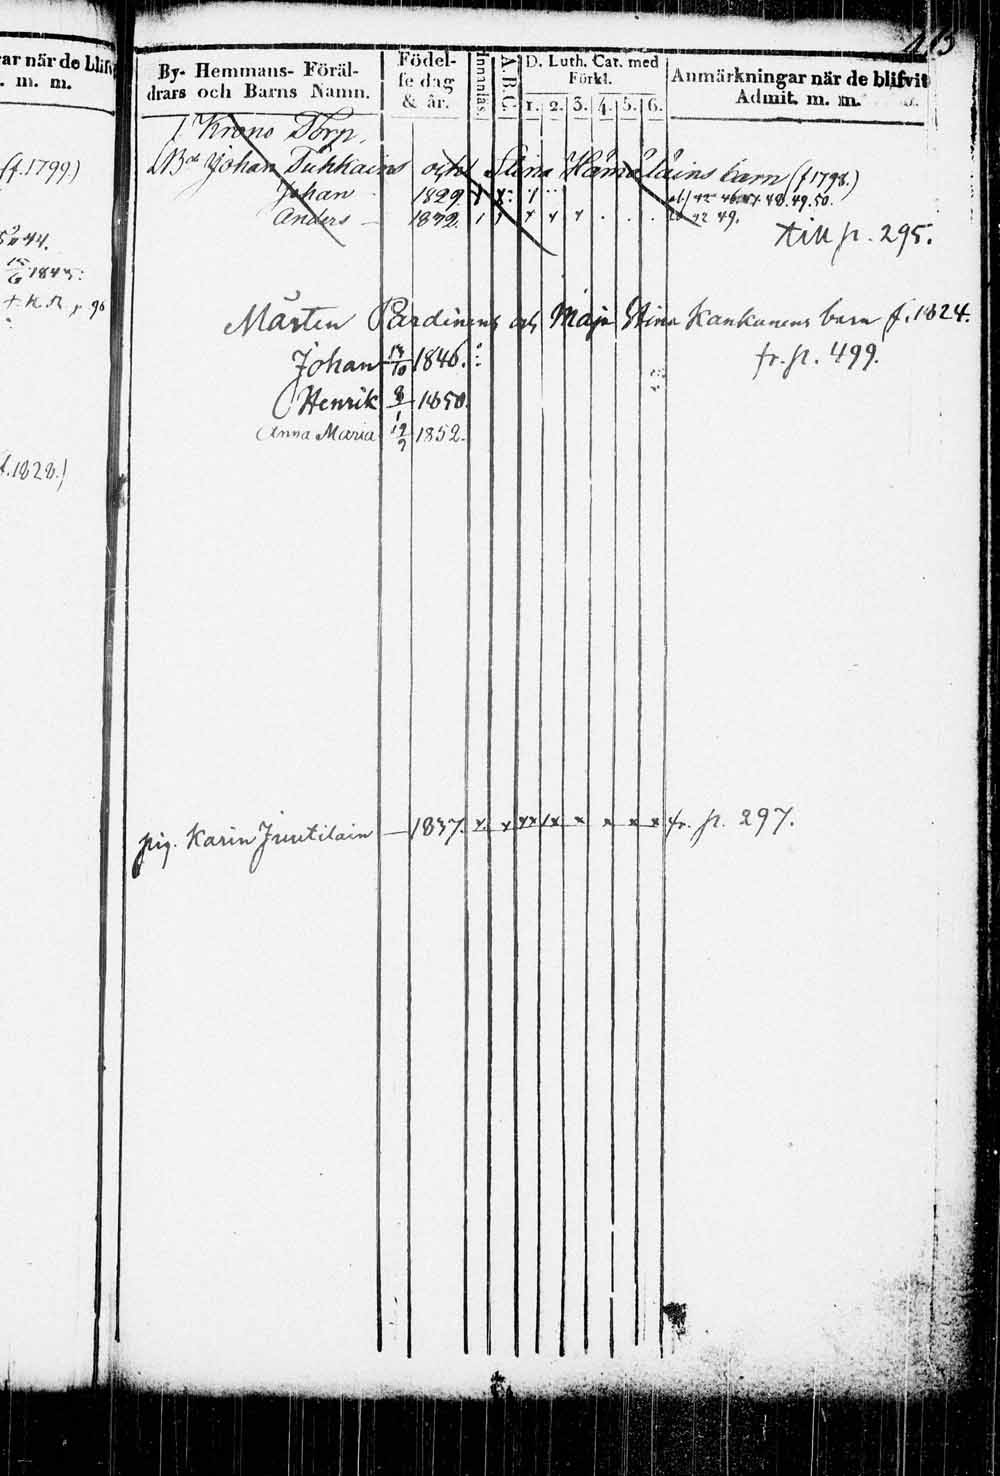 ar när de blifv
. m. m.
(f.1799)
t.k.R. p 96
f.1828.)
413
By- Hemmans- Föräl-
drars och Barns Namn.
Födel-
se dag
& år.
Innanläs.
A.B.C.
D. Luth. Cat. med
Förkl.
1. 2. 3. 4. 5. 6.
Anmärkningar när de blifvit
Admit. m. m.
1 Krono Torp.
Johan Tuhkains och Stina Hämäläins barn (f 1798.)
Johan 1829. 48. 49. 50.
Anders — 1832. 42 49.
till p. 295.
Mårten Pardinens och Maja Stina Kankunens barn f. 1824.
Johan 1846. fr. p. 499.
Henrik 8/1 1850.
Anna Maria 1852.
pig. Karin Juutilain — 1837. fr. p. 297.